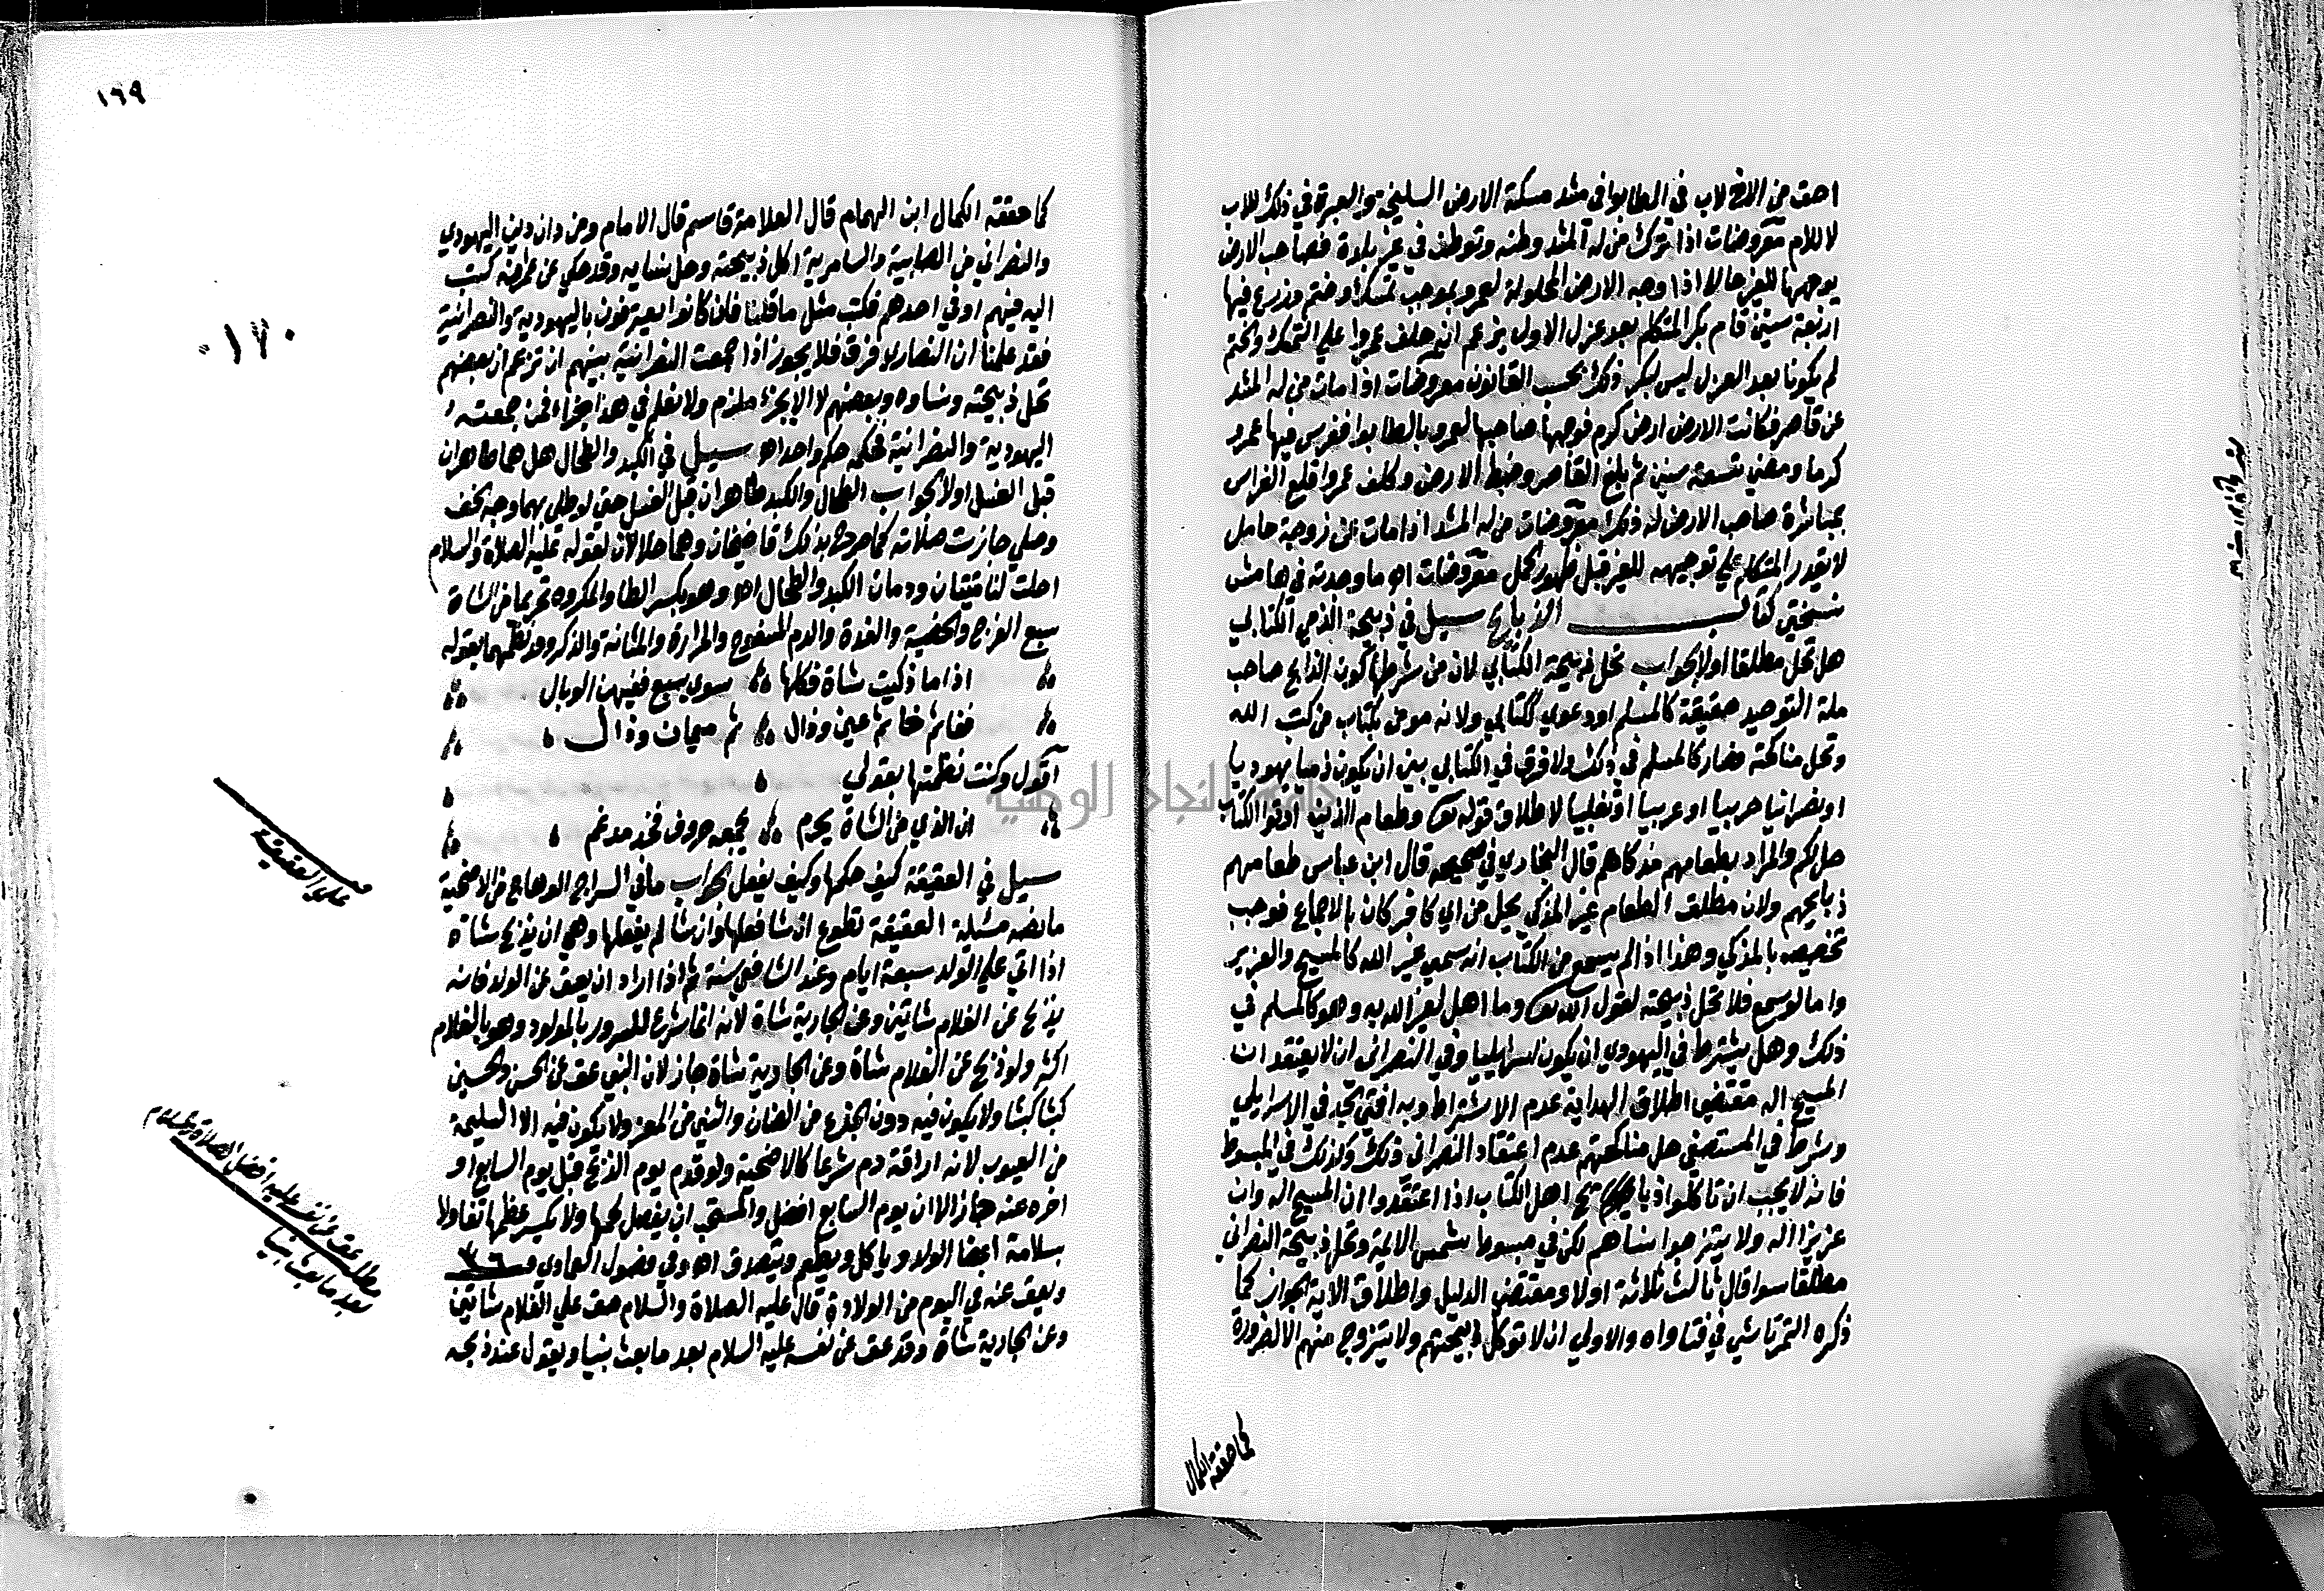 احق من الاخ لاب في الطابو في مشد مسكة الارض السليخة والعبرة في ذلك للاب
لا للام معروضات اذا ترك من له المشد وطنه وتوطن في غير بلدة فصاحب الارض
يوجهها للغير حالا اذا وجه الارض المحلولة لعمرو بموجب تمسك وختم وزرع فيها
اربعة سنين قام بكر المتكلم بعد عزل الاول يزعم ان حلف عمروا علي التمسك والختم
لم يكونا بعد العزل ليس لبكر ذلك بحسب القانون معروضات اذا مات من له المشد
عن قاصر فكانت الارض ارض كرم فوجهها صاحبها لعمرو بالطابو فغرس فيها عمرو
كرما ومضي تسعة سنين ثم بلغ القاصر وضبط الارض وكلف عمروا قلع الغراس
بمباشرة صاحب الارض له ذلك معروضات من له المشد اذا مات عن زوجة حامل
لا يقدر المتكلم علي توجيهه للغير قبل ظهور الحمل معروضات اه ما وجدته في هامش
نسختي كتاب الذبايح سيل في ذبيحة الذمي الكتابي
هل تحل مطلقا اولا الجواب تحل ذبيحة الكتابي لان من شرطها كون الذابح صاحب
ملة التوحيد حقيقة كالمسلم او دعوي كالكتابي ولانه مومن بكتاب من كتب الله
وتحل مناكحته فصار كالمسلم في ذلك ولا فرق في الكتابي بين ان يكون ذميا يهوديا
او نصرانيا حربيا او عربيا او تغلبيا لاطلاق قوله تعالى وطعام الذين اوتوا الكتاب
حل لكم والمراد بطعامهم مذكاهم قال البخاري في صحيحه قال ابن عباس طعامهم
ذبايحهم ولان مطلق الطعام غير المذكي يحل من اي كافر كان بالاجماع فوجب
تخصيصه بالمذكي وهذا اذا لم يسمع من الكتابي انه سمي غير الله كالمسيح والعزير
واما لو سمع فلا تحل ذبيحته لقول الله تعالى وما اهل لغير الله به وهو كالمسلم في
ذلك وهل يشترط في اليهودي ان يكون اسرايليا وفي النصراني ان لا يعتقد ان
المسيح اله مقتضي اطلاق الهداية عدم الاشتراط وبه افتي الجد في الاسرايلي
وشرط في المستصفي حل مناكحتهم عدم اعتقاد النصراني ذلك وكذلك في المبسوط
فانه لا يجب ان تاكلوا ذبايح اهل الكتاب اذا اعتقدوا ان المسيح اله وان
عزيزا اله ولا يتزوجوا بنساهم لكن في مبسوط شمس الايمة وتحل ذبيحة النصراني
مطلقا سوا قال ثالث ثلاثة اولا ومقتضي الدليل واطلاق الاية الجواز كما
ذكره التمرتاشي في فتاواه والاولي ان لا توكل ذبيحتهم ولا يتزوج منهم الا لضرورة
كما حققه الكمال
١٦٩
١٧٠
كما حققه الكمال ابن الهمام قال العلامة قاسم قال الامام ومن دان دين اليهودي
والنصراني من الصابية والسامرية اكل ذبيحته وحل نسايه وقد حكي عن عمر انه كتب
اليه فيهم او في احدهم فكتب مثل ما قلنا فاذا كانوا يعترفون باليهودية والنصرانية
فقد علمنا ان النصاري لا فرق فلا يجوز اذا جمعت النصرانية بينهم ان نزعم ان بعضهم
تحل ذبيحته ونساوه وبعضهم لا الا بخبر ملزم ولا نعلم في هذا خبرا فمن جمعته
اليهودية والنصرانية فحكمه حكم واحد اه سيل في الكبد والطحال هل هما طاهران
قبل الغسل اولا الجواب الطحال والكبد طاهران قبل الغسل حتي لو طلي بهما وجه الخف
وصلي جازت صلاته كما صرح بذلك قاضيخان وهما حلالان لقوله عليه الصلاة والسلام
احلت لنا ميتتان ودمان الكبد والطحال اه وهو بكسر الطا والمكروه تحريما من الشاة
سبع الفرج والخصية والغدة والدم المسفوح والمرارة والمثانة والذكر وقد نظمها بقوله
اذا ما ذكيت شاة فكلها سوي سبع ففيهن الوبال
فقاء ثم خاء ثم غين ودال ثم ميمان وذال
اقول وكنت نظمتها بقولي
ان الذي من الشاة يحرم يجمعه حروف فخذ مدغم
سيل في العقيقة كيف حكمها وكيف يفعل الجواب ما في السراج الوهاج من الاضحية
ما نصه مسئلة العقيقة تطوع ان شا فعلها وان شا لم يفعلها وهي ان يذبح شاة
اذا اتي علي الولد سبعة ايام وعند الشافعي سنة ثم اذا اراد ان يعق عن الولد فانه
يذبح عن الغلام شاتين وعن الجارية شاة لانه انما شرع للسرور بالمولود وهو بالغلام
اكثر ولو ذبح عن الغلام شاة وعن الجارية شاة جاز لان النبي عق عن الحسن والحسين
كبشا كبشا ولا يكون فيه دون الجذع من الضان والثني من المعز ولا يكون فيه الا السليمة
من العيوب لانه اراقة دم شرعا كالاضحية ولو قدم يوم الذبح قبل يوم السابع او
اخره عنه جاز الا ان يوم السابع افضل والمستحب ان يفصل لحمها ولا يكسر عظمها تفاولا
بسلامة اعضا الولد وياكل ويطعم ويتصدق اه وفي فصول العمادي
ويعق عنه في اليوم من الولادة قال عليه الصلاة والسلام حق علي الغلام شاتين
وعن الجارية شاة وقد عق عن نفسه عليه السلام بعد ما بعث نبيا ويقول عند ذبحه
علي العقيقة
مطلب عق عن نفسه عليه افضل الصلاة والسلام
بعد ما بعث نبيا
جامعة النجاح الوطنية